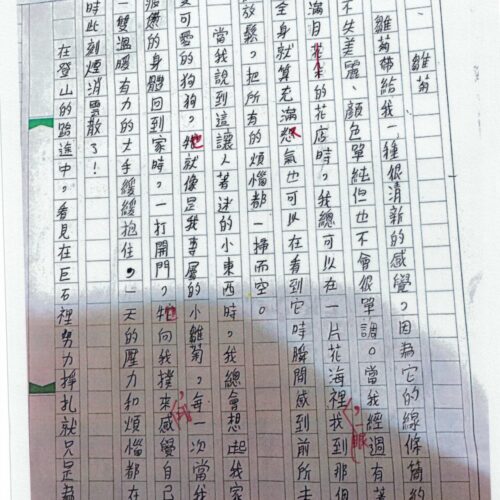 、雛菊
雛菊帶給我一種很清新的感覺。因為它的線條簡約
不失美麗、顏色單純但也不會很單調。當我經過有著
滿的花店時,我總可以在一片花海裡找到那個
眼
全身就算充滿怨氣也可以在看到它時瞬間感到前所未
放鬆,把所有的煩惱都一掃而空。
當我說到這讓人著迷的小東西時,我總會想起我家
可愛的狗狗。牠就像是我專屬的小雛菊,每一次當我
疲憊的身體回到家時,一打開門,牠向我撲來感覺自己
一雙溫暖有力的大手緩緩抱住,一天的壓力和煩惱都在
時此刻煙消雲散了!
在登山的路途中,看見在巨石裡努力掙扎就只是為